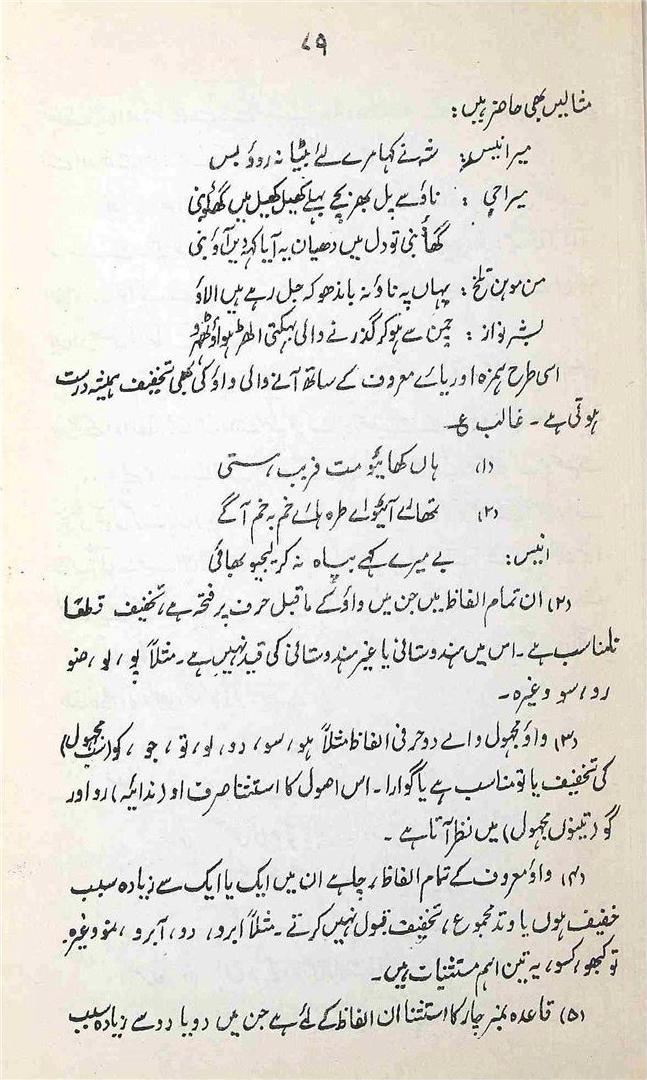 ۸۹
مثالیں بھی حاضر ہیں:
میر انیس: شہ نے کہا مرے لئے بیٹا نہ روؤ بس
میراجی: ناؤ سے پل بھر نیچے پہلے کھیل کھیل میں گھاؤ بنی
گھاؤ بنی تو دل میں دھیان یہ آیا کہہ دیں آؤ بنی
من موہن تلخ: یہاں پہ ناؤ نہ باندھو کہ جل رہے ہیں الاؤ
بشر نواز: چمن سے ہو کر گذرنے والی بہکتی الھڑ ہواؤ ٹھہرو
اسی طرح ہمزہ اور یائے معروف کے ساتھ آنے والی واؤ کی بھی تخفیف ہمیشہ درست
ہوتی ہے۔ غالب ع
(۱) ہاں کھائیو مت فریب ہستی
(۲) تھا لے آئیو اے طرہ ہائے خم بہ خم آگے
انیس: بے میرے کہے بیاہ نہ کر لیجیو بھائی
(۲) ان تمام الفاظ میں جن میں واؤ کے ماقبل حرف پر فتحہ ہے، تخفیف قطعاً
نامناسب ہے۔ اس میں ہندوستانی یا غیر ہندوستانی کی قید نہیں ہے۔ مثلاً پو، لو، ضو
رو، سو وغیرہ۔
(۳) واؤ مجہول والے دو حرفی الفاظ مثلاً ہو، سو، دو، لو، تو، جو، کو (سب مجہول)
کی تخفیف یا تو مناسب ہے یا گوارا۔ اس اصول کا استثنا صرف او (ندائیہ) رو اور
گو (تینوں مجہول) میں نظر آتا ہے۔
(۴) واؤ معروف کے تمام الفاظ، چاہے ان میں ایک یا ایک سے زیادہ سبب
خفیف ہوں یا وتد مجموع، تخفیف قبول نہیں کرتے۔ مثلاً ابرو، رو، آبرو، نمو وغیرہ
تو کبھو، کسو، یہ تین اہم مستثنیات ہیں۔
(۵) قاعدہ نمبر چار کا استثنا ان الفاظ کے لئے ہے جن میں دو یا دو سے زیادہ سبب